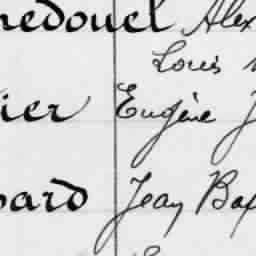 nedouel Alex
Louis
ier Eugène J
pard Jean Bap